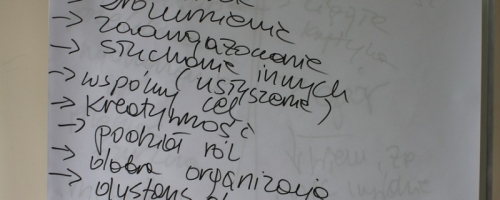 → zrozumienie
→ zaangażowanie
→ słuchanie innych
(usłyszenie)
→ wspólny cel
→ kreatywność
→ podział ról
→ dobra organizacja
→ dystans